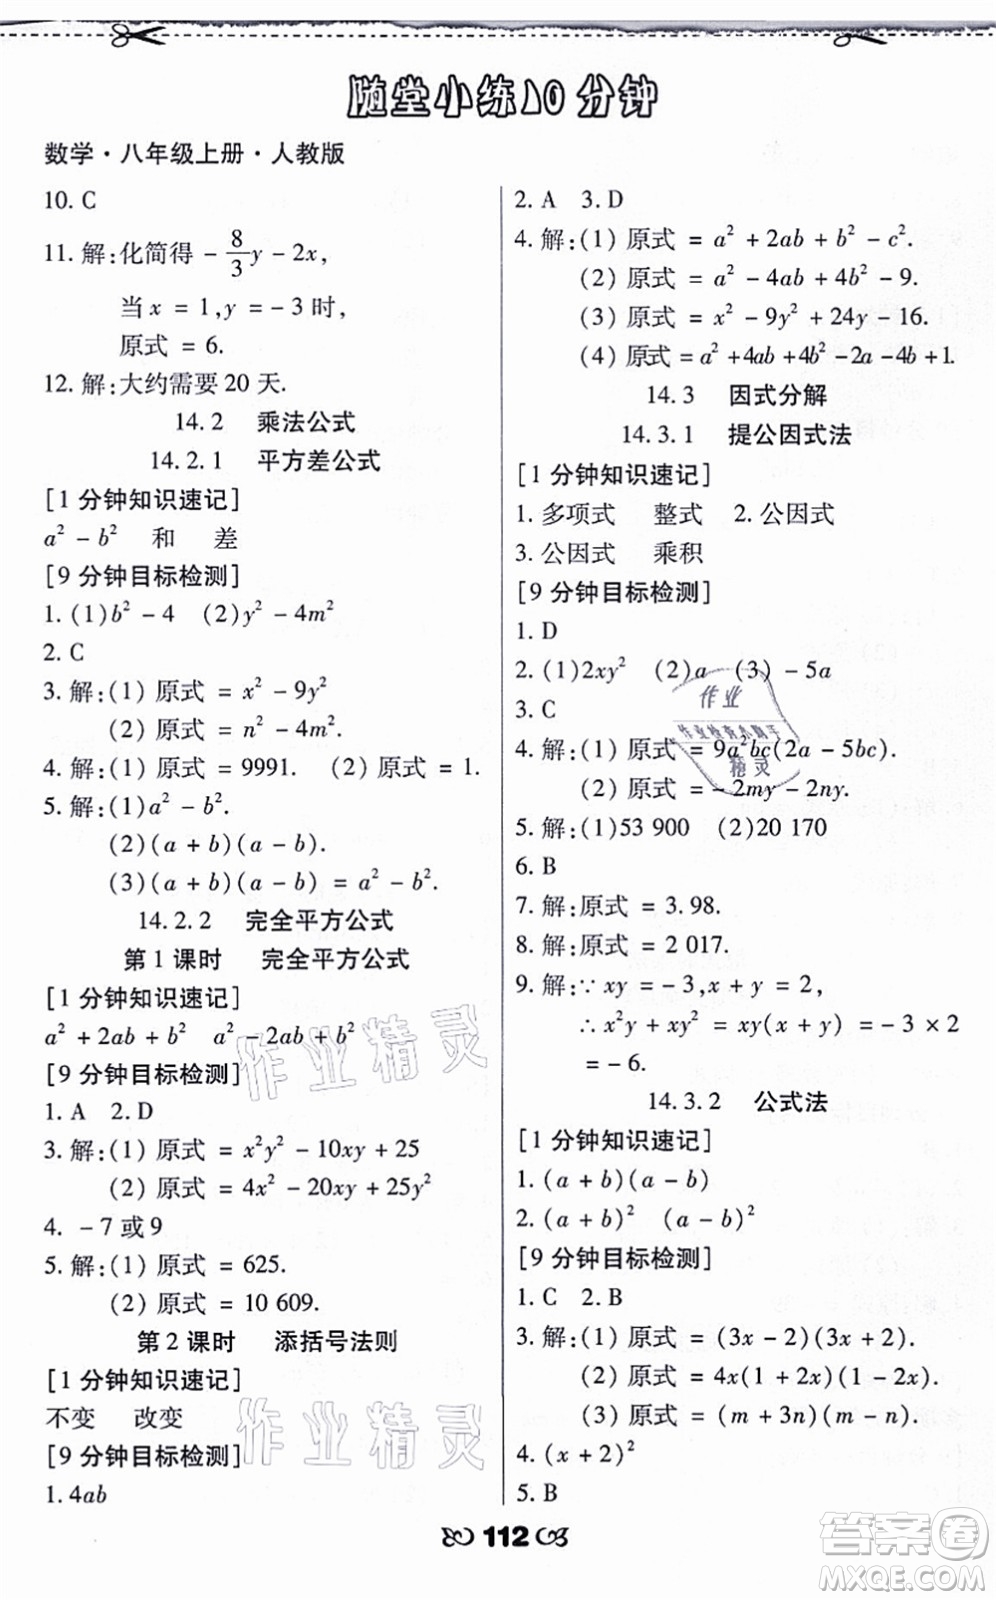 随堂小练10分钟
数学·八年级上册·人教版
10. C
11. 解:化简得 -8/3y - 2x,
当x = 1,y = -3 时,
原式 = 6.
12. 解:大约需要 20 天.
14.2 乘法公式
14.2.1 平方差公式
[1 分钟知识速记]
a² - b² 和 差
[9 分钟目标检测]
1. (1)b² - 4 (2)y² - 4m²
2. C
3. 解:(1) 原式 = x² - 9y²
(2) 原式 = n² - 4m².
4. 解:(1) 原式 = 9991. (2) 原式 = 1.
5. 解:(1)a² - b².
(2)(a + b)(a - b).
(3)(a + b)(a - b) = a² - b².
14.2.2 完全平方公式
第 1 课时 完全平方公式
[1 分钟知识速记]
a² + 2ab + b² a² - 2ab + b²
[9 分钟目标检测]
1. A 2. D
3. 解:(1) 原式 = x²y² - 10xy + 25
(2) 原式 = 4x² - 20xy + 25y²
4. - 7 或 9
5. 解:(1) 原式 = 625.
(2) 原式 = 10 609.
第 2 课时 添括号法则
[1 分钟知识速记]
不变 改变
[9 分钟目标检测]
1. 4ab
2. A 3. D
4. 解:(1) 原式 = a² + 2ab + b² - c².
(2) 原式 = a² - 4ab + 4b² - 9.
(3) 原式 = x² - 9y² + 24y - 16.
(4) 原式 = a² + 4ab + 4b² - 2a - 4b + 1.
14.3 因式分解
14.3.1 提公因式法
[1 分钟知识速记]
1. 多项式 整式 2. 公因式
3. 公因式 乘积
[9 分钟目标检测]
1. D
2. (1)2xy² (2)a (3) - 5a
3. C
4. 解:(1) 原式 = 9a²bc(2a - 5bc).
(2) 原式 = - 2my - 2ny.
5. 解:(1)53 900 (2)20 170
6. B
7. 解:原式 = 3.98.
8. 解:原式 = 2 017.
9. 解:∵ xy = - 3,x + y = 2,
∴ x²y + xy² = xy(x + y) = - 3 × 2
= - 6.
14.3.2 公式法
[1 分钟知识速记]
1. (a + b)(a - b)
2. (a + b)² (a - b)²
[9 分钟目标检测]
1. C 2. B
3. 解:(1) 原式 = (3x - 2)(3x + 2).
(2) 原式 = 4x(1 + 2x)(1 - 2x).
(3) 原式 = (m + 3n)(m - n).
4. (x + 2)²
5. B
112
作业精灵
作业精灵
答案卷
MXQE.COM